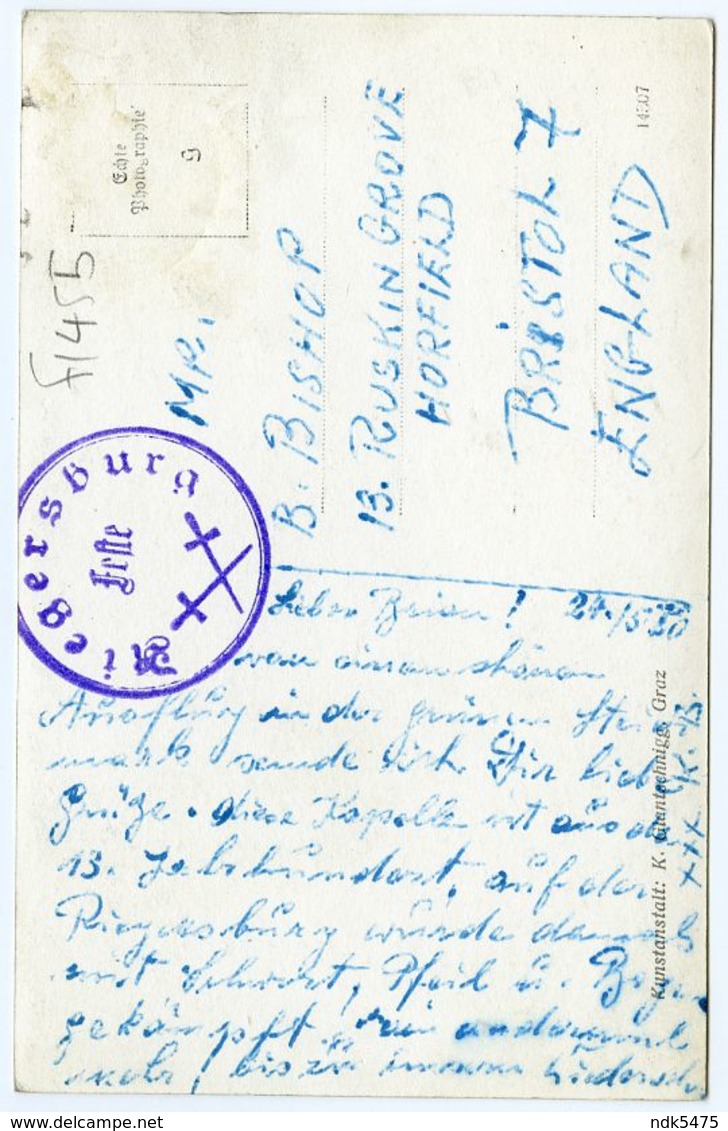 Echte
Photographie
9
F/455
14807
MR.
B. BISHOP
13. RUSKIN GROVE
HORFIELD
BRISTOL 7
ENGLAND
Riegersburg
Feste
Lieber Brian!
von einem schönen
Ausflug in der grünen Steier
mark sende ich Dir liebe
Grüße. diese Kapelle ist aus dem
13. Jahrhundert, auf der
Riegersburg wurde damals
mit Schwert, Pfeil u. Bogen
gekämpft, ein andermal
mehr, bis zu
Kunstanstalt: K. Graz
ndk5475
www.delcampe.net